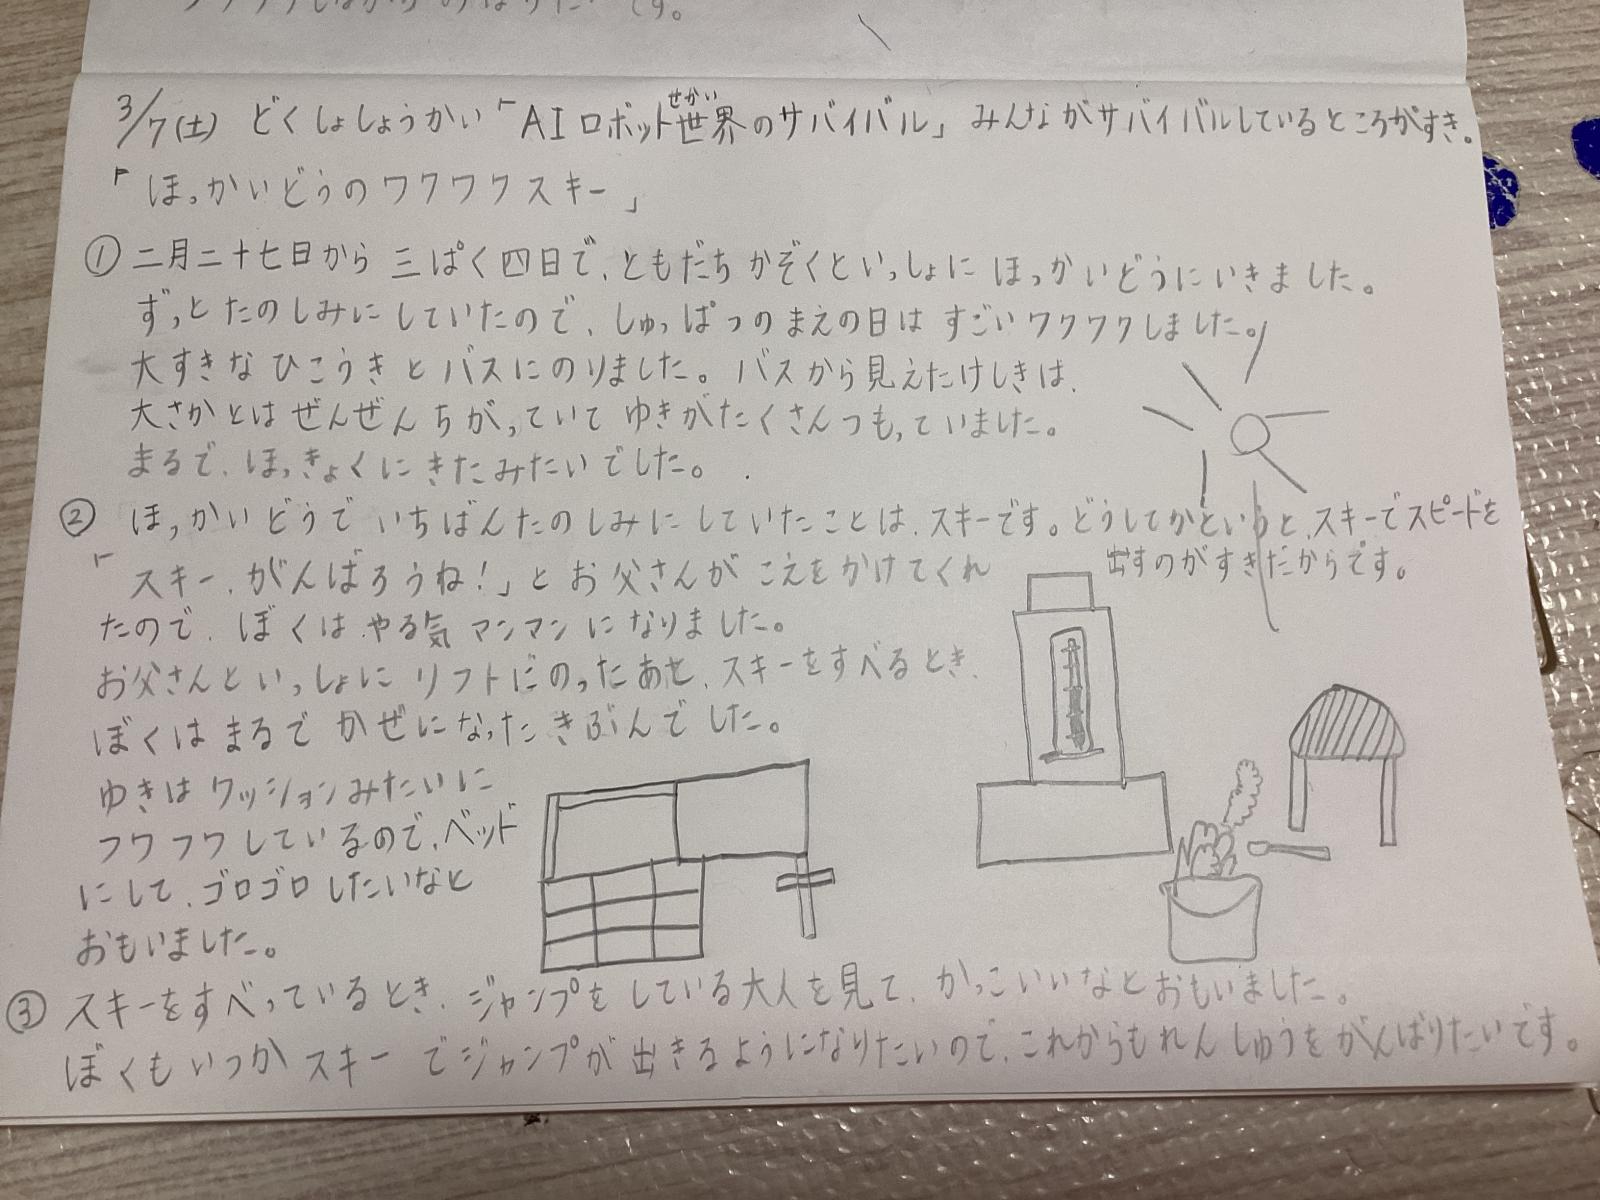 3/7(土) どくしょしょうかい「AIロボット世界のサバイバル」 みんながサバイバルしているところがすき。
せかい
「ほっかいどうのワクワクスキー」
① 二月二十七日から 三ぱく四日で、ともだち かぞくといっしょに ほっかいどうにいきました。
ずっと たのしみに していたので、しゅっぱつのまえの日は すごいワクワクしました。
大すきな ひこうきと バスにのりました。バスから見えたけしきは、
大さかとは ぜんぜん ちがっていて ゆきがたくさんつもっていました。
まるで、ほっきょくに きたみたいでした。
② ほっかいどうで いちばんたのしみにしていたことは、スキーです。どうしてかというと、スキーでスピードを
出すのがすきだからです。
「スキー、がんばろうね!」と お父さんが こえをかけてくれ
たので、ぼくは、やる気マンマンになりました。
お父さんと いっしょに リフトにのったあと、スキーをすべるとき、
ぼくは まるで かぜになったきぶんでした。
ゆきは クッションみたいに
フワフワしているので、ベッド
にして、ゴロゴロしたいなと
おもいました。
③ スキーをすべっているとき、ジャンプを している大人を見て、かっこいいなとおもいました。
ぼくも いつか スキーでジャンプが 出きるようになりたいので、これからもれんしゅうをがんばりたいです。